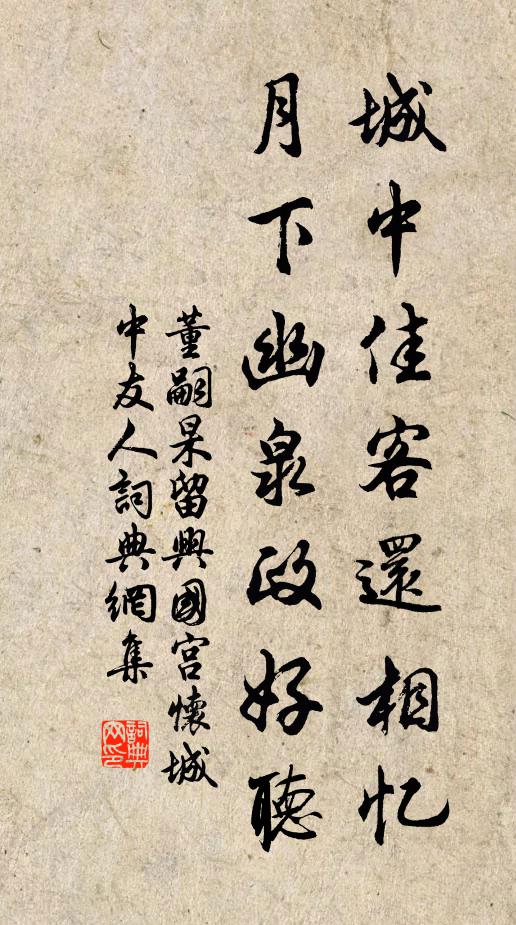 城中佳客還相忆
月下幽泉政好聽
董嗣杲留興國宮懷城
中友人詞典網集
詞典